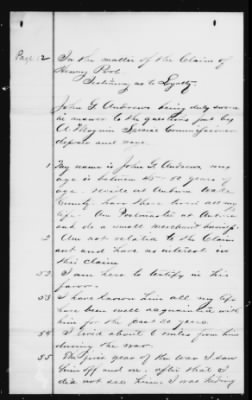 Page 2
In the matter of the Claim of
Henry Pool
Testimony as to Loyalty
John G Andrews being duly sworn
in answer to the questions put by
A Special Commissioner
deposes and says
1 My name is John G Andrews my
age is between 45 - 50 years of
age. reside at Auburn Wake
County. have lived all my
life. Am Postmaster at Auburn
and do a small merchant business.
2 Am not related to the Claim
ant and have no interest in
this claim
52 I am here to testify in his
favor.
53 I have known him all my life
have been well acquainted with
him for the past 20 years.
54 I lived about 6 miles from him
during the war.
55 The first year of the war I saw
him off and on, after that I
did not see him. I was hiding